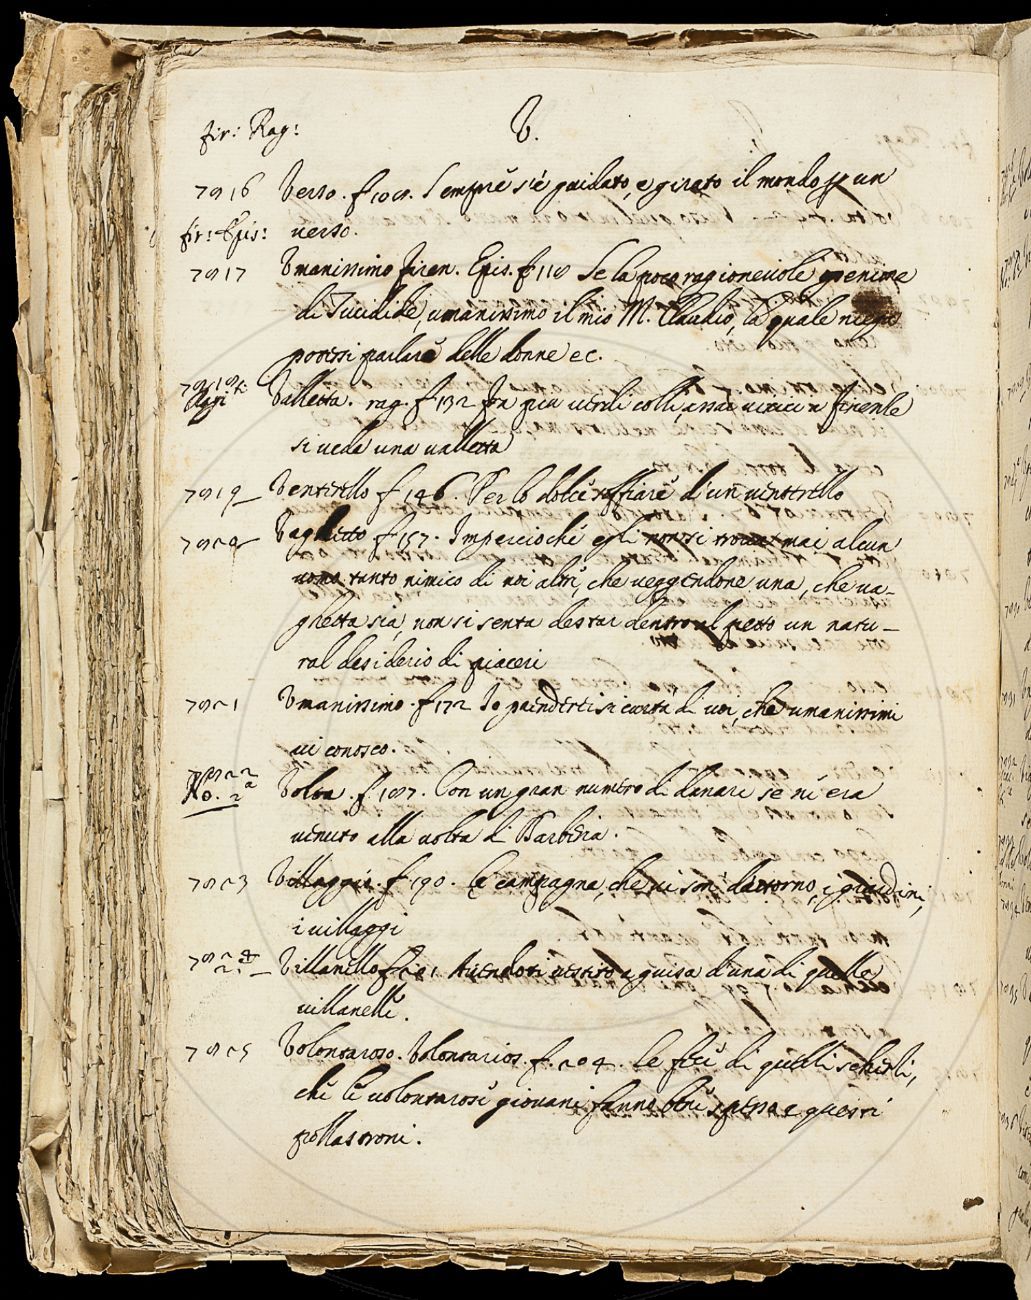 fir: Rag: V.
7016 Verso. f. Sempre s'è guidato, e girato il mondo p un
fir: Epis: verso.
7017 Vmanissimo firen. Epis. f 110 Se la poco ragionevole openione
di Tucidide, umanissimo il mio M. Claudio, la quale niega
potersi parlare delle donne ec.
7018 Valletta. rag. f 132 fra più utili colli assai vicin a firenze
Agn si veda una valletta
7019 Venticello f 146. Per lo dolce soffiare d'un venticello
7020 Vaghetto f 157. Impercioché egli non si trova mai alcun
uomo tanto nimico di noi altre, che veggendone una, che va-
ghetta sia, non si senta destar dentro al petto un natu-
ral desiderio di piaceri
7021 Vmanissimo. f 172 Io prenderei sicurtà di voi, che umanissimi
vi conosco.
7022 Volta. f 187. Con un gran numero di danari se n'era
No. 2a venuto alla volta di Barbiria.
7023 Villaggio. f 190. La campagna, che vi son dattorno, i giardini,
i villaggi
702 Villanella f 201. Avendosi vestito a guisa d'una di quelle
2: villanelle.
7025 Volontaroso. Volontarios. f. 204. Le feci di quelli scherzi,
che li volontarosi giovani fanno bene spesso e questi
pollastroni.